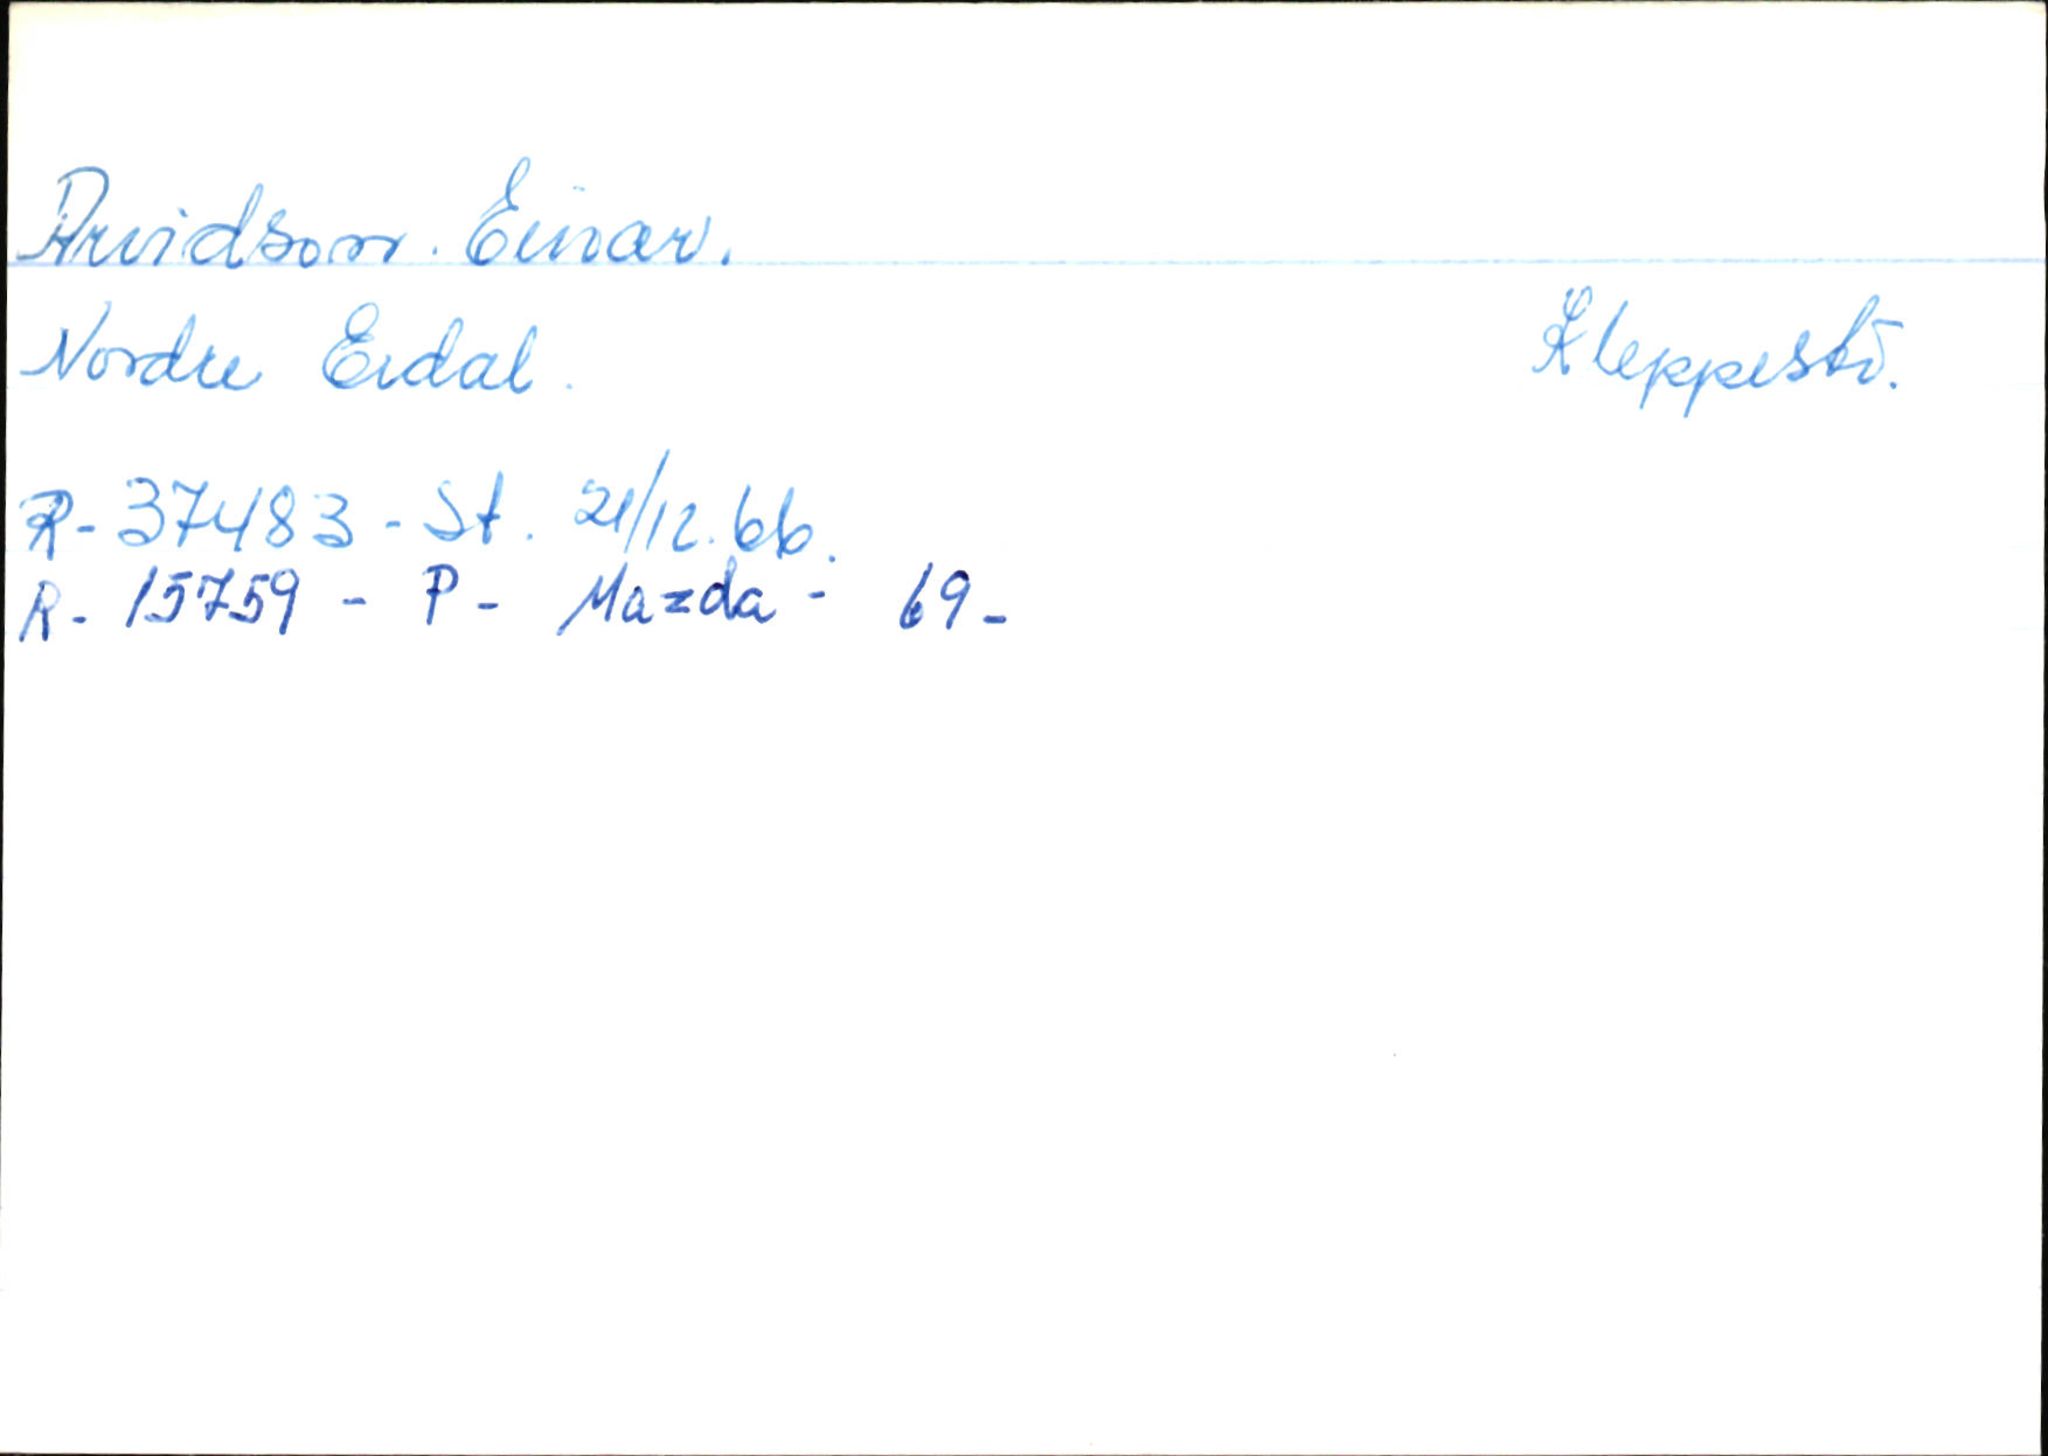 Arvidson. Einar.
Nordre Erdal. Kleppestö.
R- 37483 - St. 21/12.66.
R- 15759 - P - Mazda - 69-